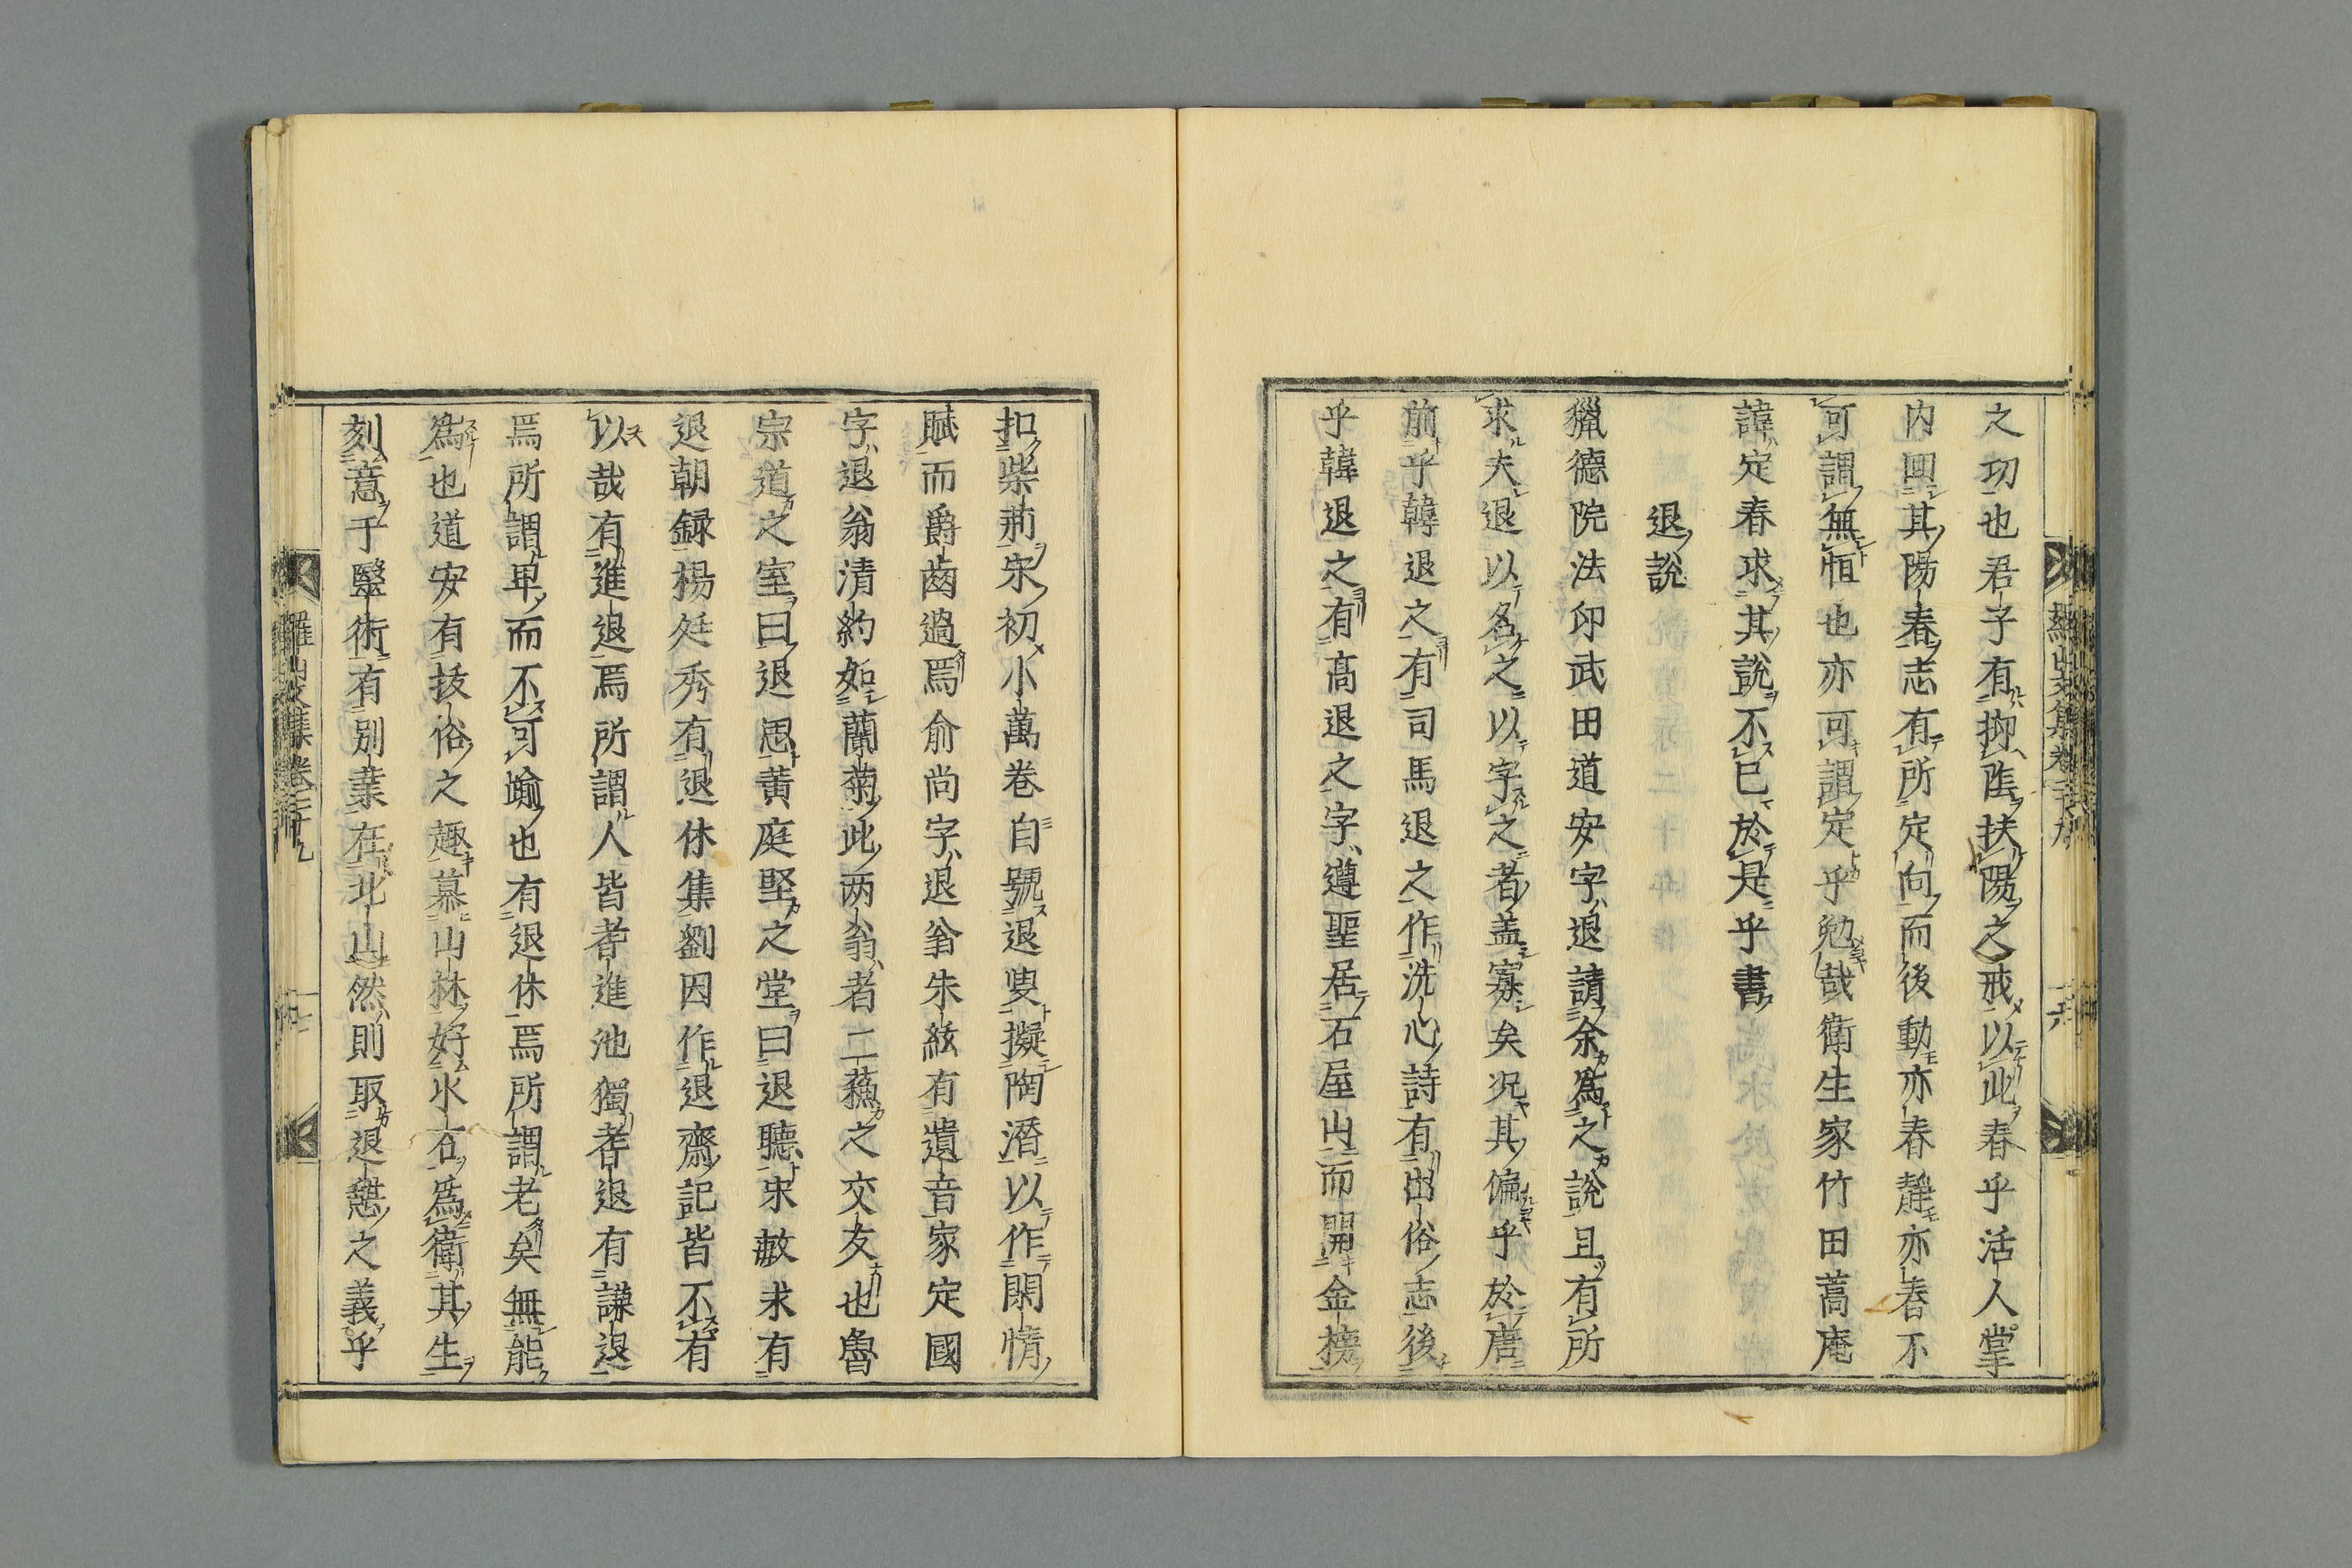 之功也君子有抑陰扶陽之戒以此春乎活人掌
内回其陽春志有所定向而後動亦春靜亦春不
可謂無恒也亦可謂定乎勉哉衛生家竹田蒿庵
諱定春求其說不已於是乎書
退說
獵德院法印武田道安字退請余爲之說且有所
求夫退以名之以字之者盖寡矣况其偏乎於唐
前乎韓退之有司馬退之作洗心詩有出俗志後
乎韓退之有高退之字遵聖居石屋山而開金榜
扣柴荊宋初小萬卷自號退叟擬陶潛以作閑情
賦而爵齒過焉俞尚字退翁朱絃有遺音家定國
字退翁清約如蘭菊此两翁者二蘓之交友也魯
宗道之室曰退思黄庭堅之堂曰退聽宋敏求有
退朝録楊廷秀有退休集劉因作退齋記皆不有
以哉有進退焉所謂人皆者進池獨者退有謙退
焉所謂卑而不可踰也有退休焉所謂老矣無能
爲也道安有拔俗之趣慕山林好水石爲衛其生
刻意于醫術有别業在北山然則取退憇之義乎
羅山文集卷二十九